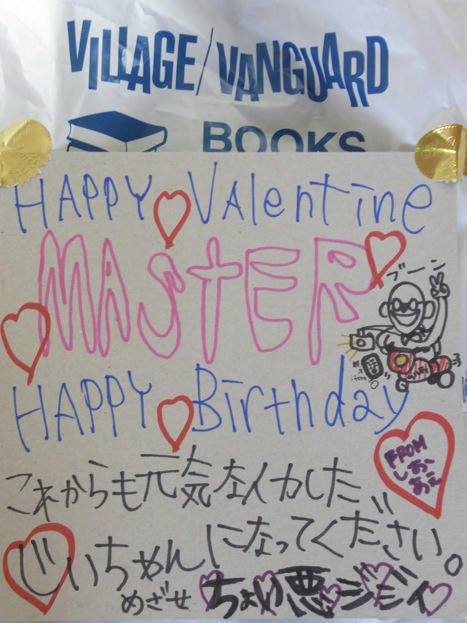 VILLAGE/VANGUARD
BOOKS
HAPPY Valentine
MASTER
ブーン
HAPPY Birthday
FROM
しおー
あえ
これからも元気なイカした
じいちゃんになってください。
めざせ ちょい悪ジジィ